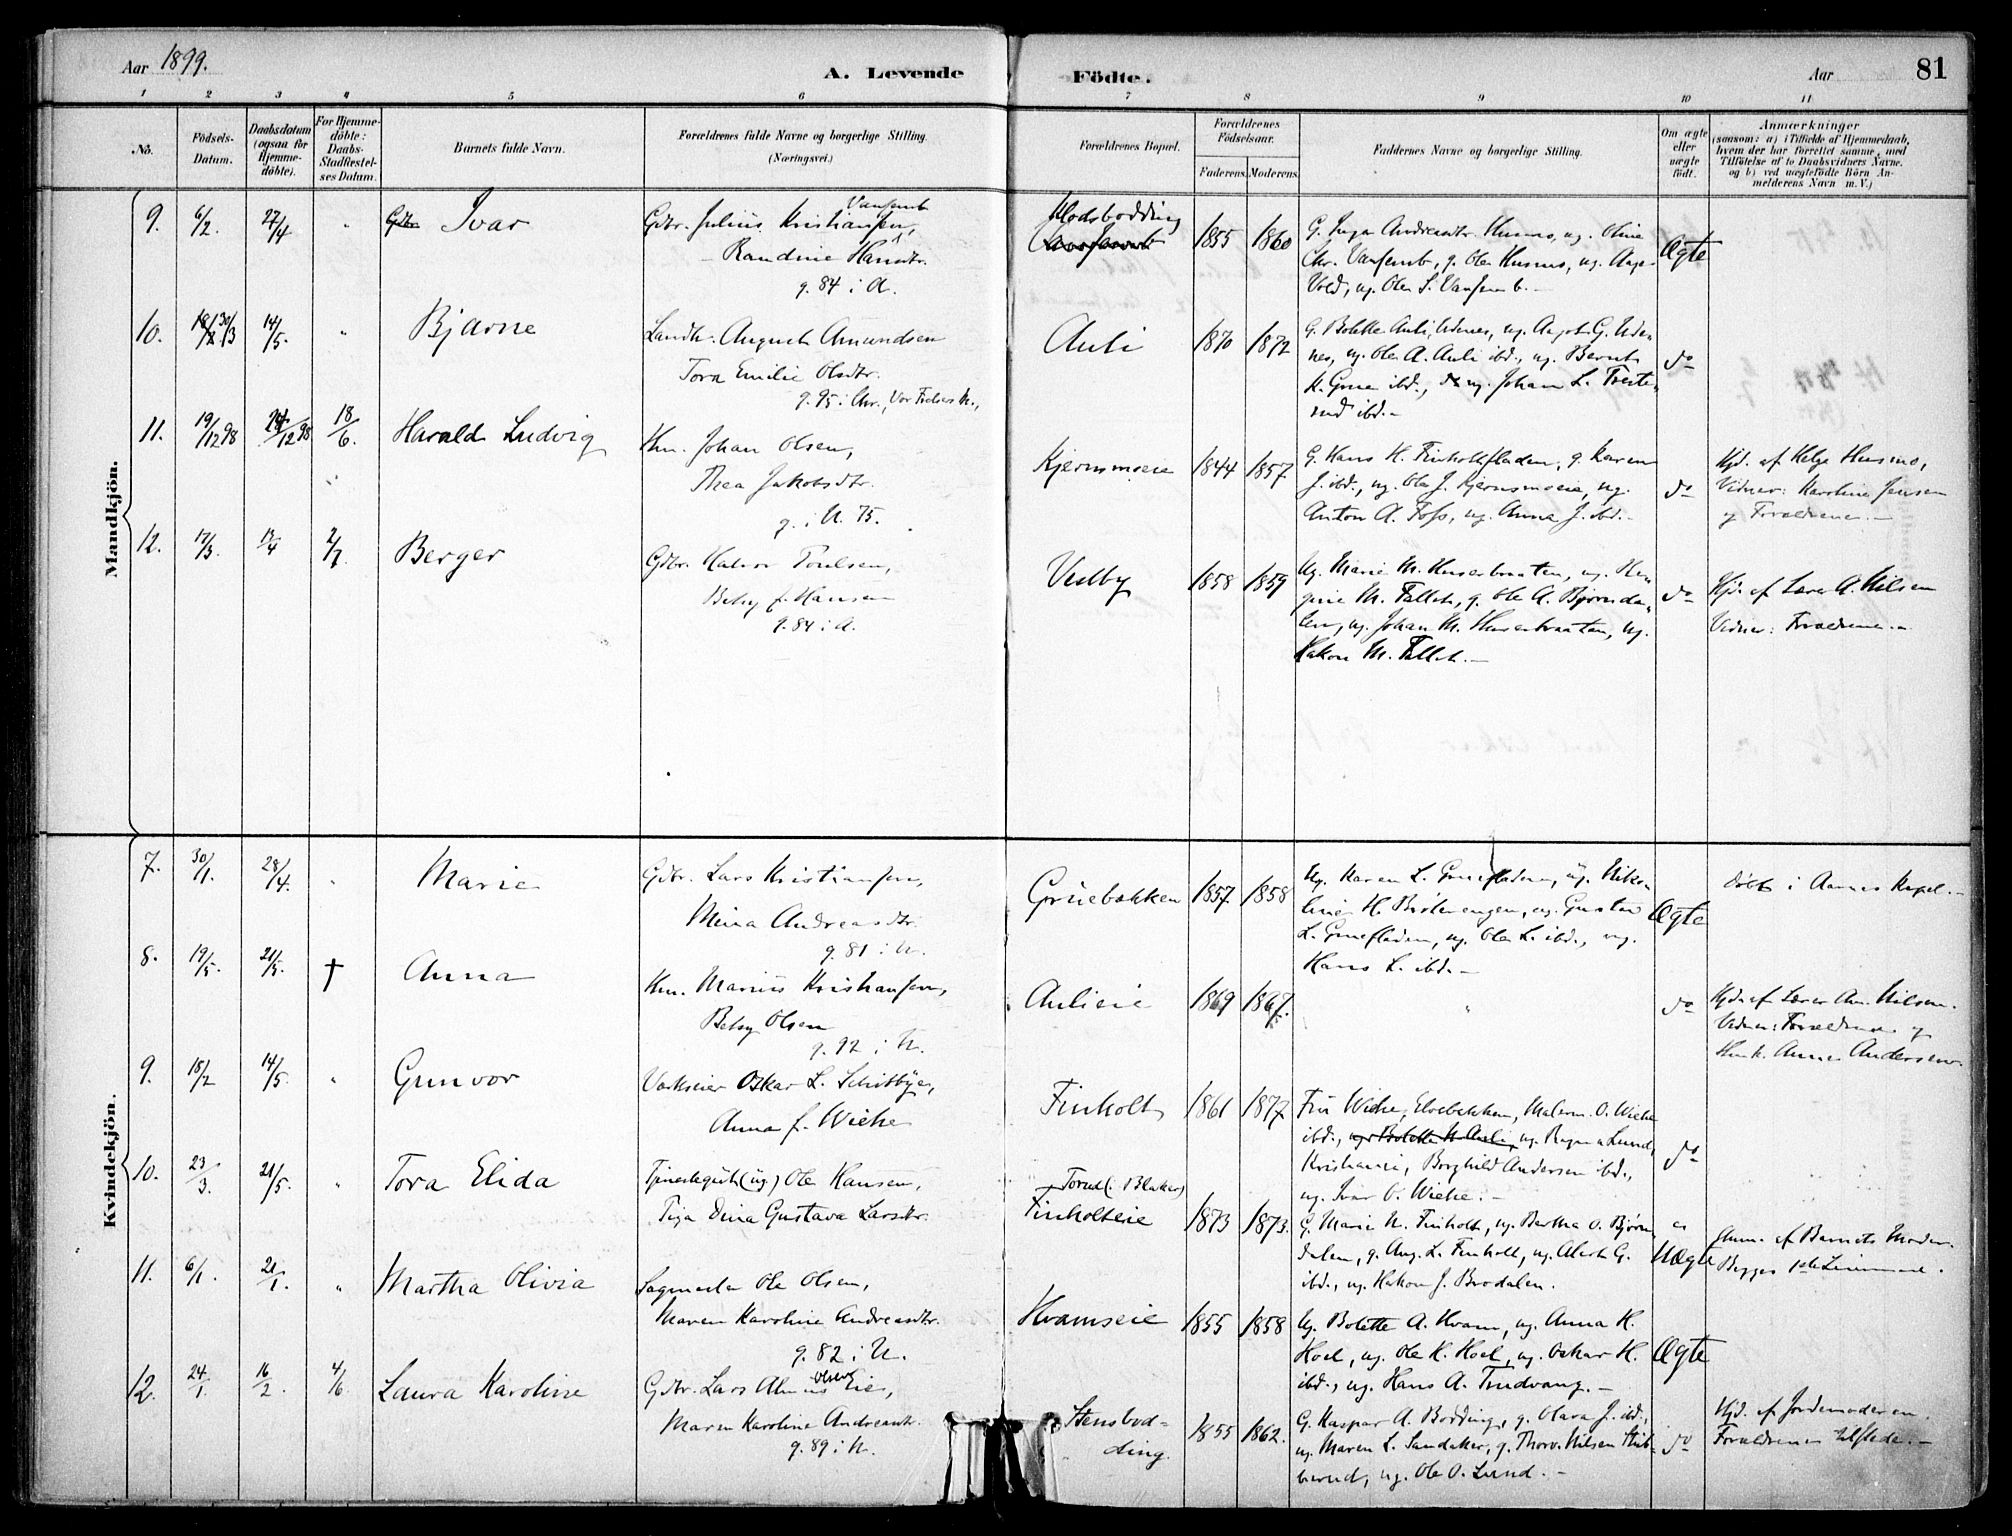 Aar 1899.
A. Levende
Fødte.
Aar
81
1 2 3 4 5 6 7 8 9 10 11
No.
Födsels-Datum.
Daabsdatum (ogsaa for Hjemme-döbte).
For Hjemme-döbte: Daabs-Stadfæstel-ses Datum.
Barnets fulde Navn.
Forældrenes fulde Navne og borgerlige Stilling. (Næringsvei.)
Forældrenes Bopæl.
Forældrenes Födselsaar.
Faderens. Moderens.
Faddernes Navne og borgerlige Stilling.
Om ægte eller uægte født.
Anmærkninger
(saasom: a) i Tilfælde af Hjemmedaab,
hvem der har forrettet samme, med
Tilföielse af to Daabsvidners Navne.
og b) ved uægtefödte Börn An-
melderens Navn m. V.)
Mandkjön.
9. 6/2. 27/4 " Ivar
Gdbr. Julius Kristiansen Vansemb,
Randine Hansdtr.
g. 84 i A.
Modsbodding
1855 1860
G. Inga Andreasdtr. Husmo, ug. Oline
Chr. Vansemb, g. Ole Husmo, ug. Aage
Vold, ug. Ole S. Vansemb.-
Ægte
10. 30/3 14/5. " Bjarne
Landh. August Amundsen
Tora Emilie Olsdtr.
g. 95 i Chr., Vor Frelsers K.,
Auli
1870 1872
G. Bolette Auli, Udnes, ug. August G. Ud-
nes, ug. Ole A. Auli ibd., ug. Bernt
K. Grue ibd., ug. Johan L. Trete-
rud ibd.-
do
11. 19/12 98 /12 98 18/6. Harald Ludvig
Hm. Johan Olsen,
Thea Jakobsdtr.
g. i N. 75.
Kjernsmoeie
1844 1857.
G. Hans H. Finholtfladen, g. Karen
J. ibd., ug. Ole J. Kjernsmoeie, ug.
Anton A. Foss, ug. Anna J. ibd.-
do
Hjd. af Helge Husmo,
Vidner: Karoline Jensen
og Forældrene.-
12. 17/3. 13/4 2/7. Berger
Gdbr. Halvor Poulsen,
Betsy f. Hansen
g. 84 i A.
Vestby
1858 1859
Ug. Marie M. Huserbraaten, ug. Hen-
gine M. Fallet, g. Ole A. Bjørnda-
len, ug. Johan M. Huserbraaten, ug.
Hakon M. Fallet.-
do
Hjd. af Lærer A. Nilsen
Vidner: Forældrene.-
Kvindekjön.
7. 30/1. 28/4. " Marie
Gdbr. Lars Kristiansen,
Mina Andreasdtr.
g. 81 i N.
Gruebakken
1857 1858
Ug. Karen L. Gruefladen, ug. Niko-
line H. Bristerengen, ug. Gustav
L. Gruefladen, ug. Ole L. ibd., ug.
Hans L. ibd.-
Ægte
døbt i Aarnes Kapel.-
8. 19/5. 21/5. † Anna
Hm. Marius Kristiansen,
Betsy Olsen
g. 92 i N.
Aulieie
1869 1867.
"
do
Hjd. af Lærer Am. Nilsen.
Vidner: Forældrene og
Husk. Anna Andersen.
9. 18/2 14/5. " Gunvor
Værkseier Oskar L. Schibbye,
Anna f. Wiche
Finholt
1861 1877
Fru Wiche, Elvebakken, Malerm. O. Wiche
ibd., ug. Bolette N. Auli, ug. Ragna Lund,
Kristiania, Borghild Andersen ibd.,
ug. Ivar O. Wiche.-
do
10. 23/3. 21/5. " Tora Elida
Tjenestegut (ug.) Ole Hansen,
Pige Dina Gustava Larsdtr.
Torud (i Blaker)
Finholteie
1873 1873.
G. Marie N. Finholt, ug. Bertha O. Bjørn-
dalen, g. Aug. L. Finholt, ug. Albert G.
ibd., ug. Hakon J. Brodalen.
Uægte
Anm. af Barnets Moder.
Begges 1ste Leiermaal.
11. 6/1. 21/1. " Martha Olivia
Sagmester Ole Olsen,
Maren Karoline Andreasdtr.
g. 82 i N.
Hvamseie
1855 1858
Ug. Bolette A. Hvam, ug. Anna K.
Hoel, ug. Ole K. Hoel, ug. Oskar H.
ibd., ug. Hans A. Trudvang.-
Ægte
12. 24/1. 16/2. 4/6. Laura Karoline
Gdbr. Lars Olsen Eie,
Maren Karoline Andreasdtr.
g. 89 i N.
Stensbod-
ding.
1855 1862.
G. Kaspar A. Bodding, g. Olava J. ibd.,
ug. Maren L. Sandaker, g. Thorv. Nilsen Stub-
berud, ug. Ole O. Lund.-
do
Hjd. af Jordemoderen.
Forældrene tilstede.-